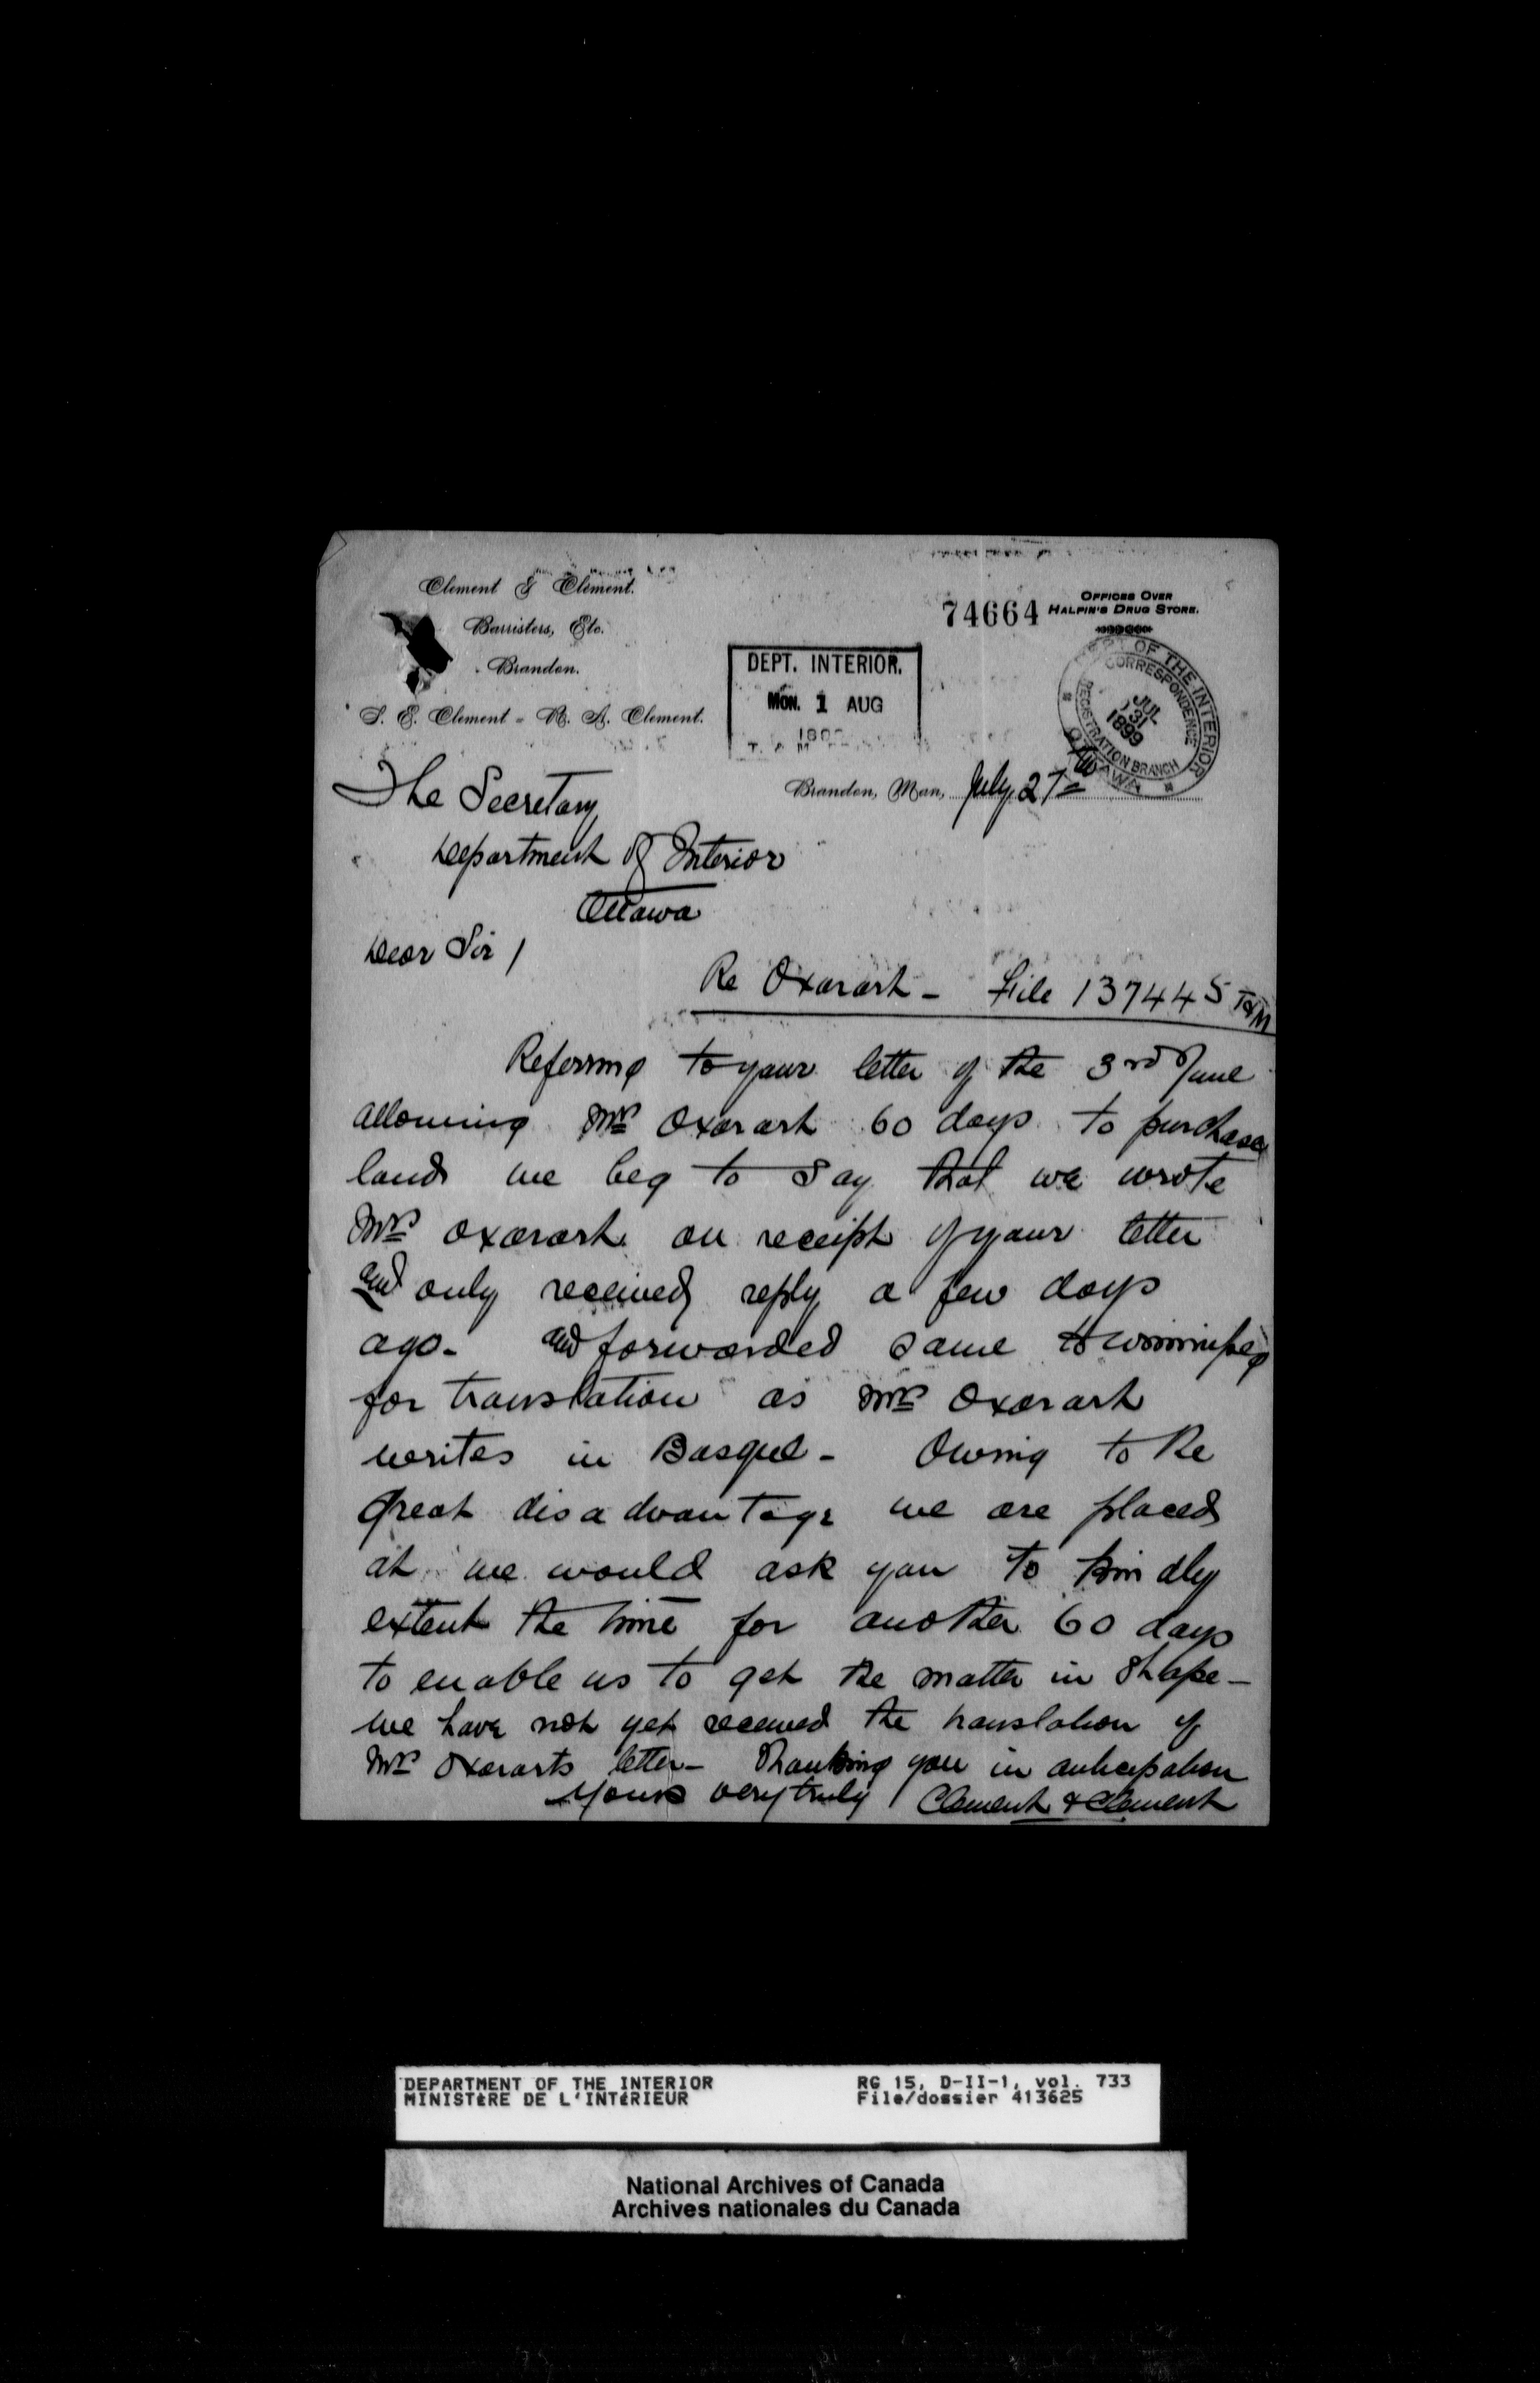 Clement & Clement.
Barristers, Etc.
Brandon.
S. E. Clement - R. A. Clement.
74664
OFFICES OVER
HALPIN'S DRUG STORE.
DEPT. INTERIOR.
MON. 1 AUG
DEPT OF THE INTERIOR
CORRESPONDENCE
REGISTRATION BRANCH
OTTAWA
JUL
31
1899
Brandon, Man, July 27th
The Secretary
Department of Interior
Ottawa
Dear Sir /
Re Oxarart - File 137445 T&M
Referring to your letter of the 3rd June
allowing Mrs Oxarart 60 days to purchase
lands we beg to say that we wrote
Mrs Oxarart on receipt of your letter
and only received reply a few days
ago - and forwarded same to Winnipeg
for translation as Mrs Oxarart
writes in Basque - Owing to the
great disadvantage we are placed
at we would ask you to kindly
extent the time for another 60 days
to enable us to get the matter in shape -
we have not yet received the translation of
Mrs Oxararts letter - Thanking you in anticipation
Yours very truly Clement & Clement
DEPARTMENT OF THE INTERIOR
MINISTÈRE DE L'INTÉRIEUR
RG 15, D-II-1, vol. 733
File/dossier 413625
National Archives of Canada
Archives nationales du Canada